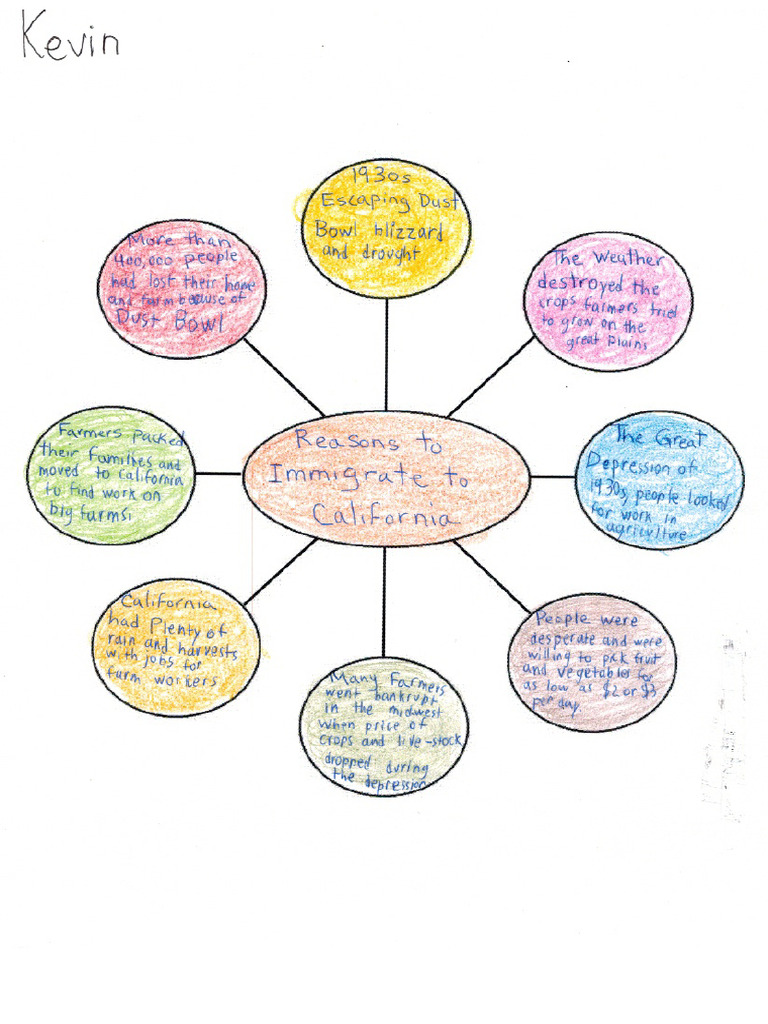 Kevin
1930s
Escaping Dust
Bowl blizzard
and drought
The Weather
destroyed the
crops farmers tried
to grow on the
great Plains
The Great
Depression of
1930s, people looked
for work in
agriculture
People were
desperate and were
willing to pick fruit
and vegetables for
as low as $2 or $3
per day.
Many Farmers
went bankrupt
in the midwest
when price of
crops and live-stock
dropped during
the depression
California
had Plenty of
rain and harvests
with jobs for
farm workers
Farmers Packed
their families and
moved to California
to find work on
big farms.
More than
400,000 people
had lost their home
and farm because of
Dust Bowl
Reasons to
Immigrate to
California